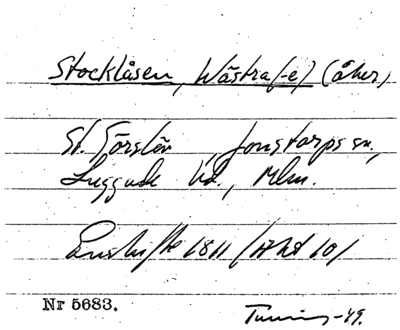 Stocklåsen, Wästra(-e) (åker)
St. Görslöv, Jonstorps sn.,
Luggude hd., Mlm.
Enskifte 1811 (Akt 10)
Nr 5683.
-49.